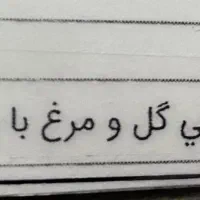 ي گل و مرغ با